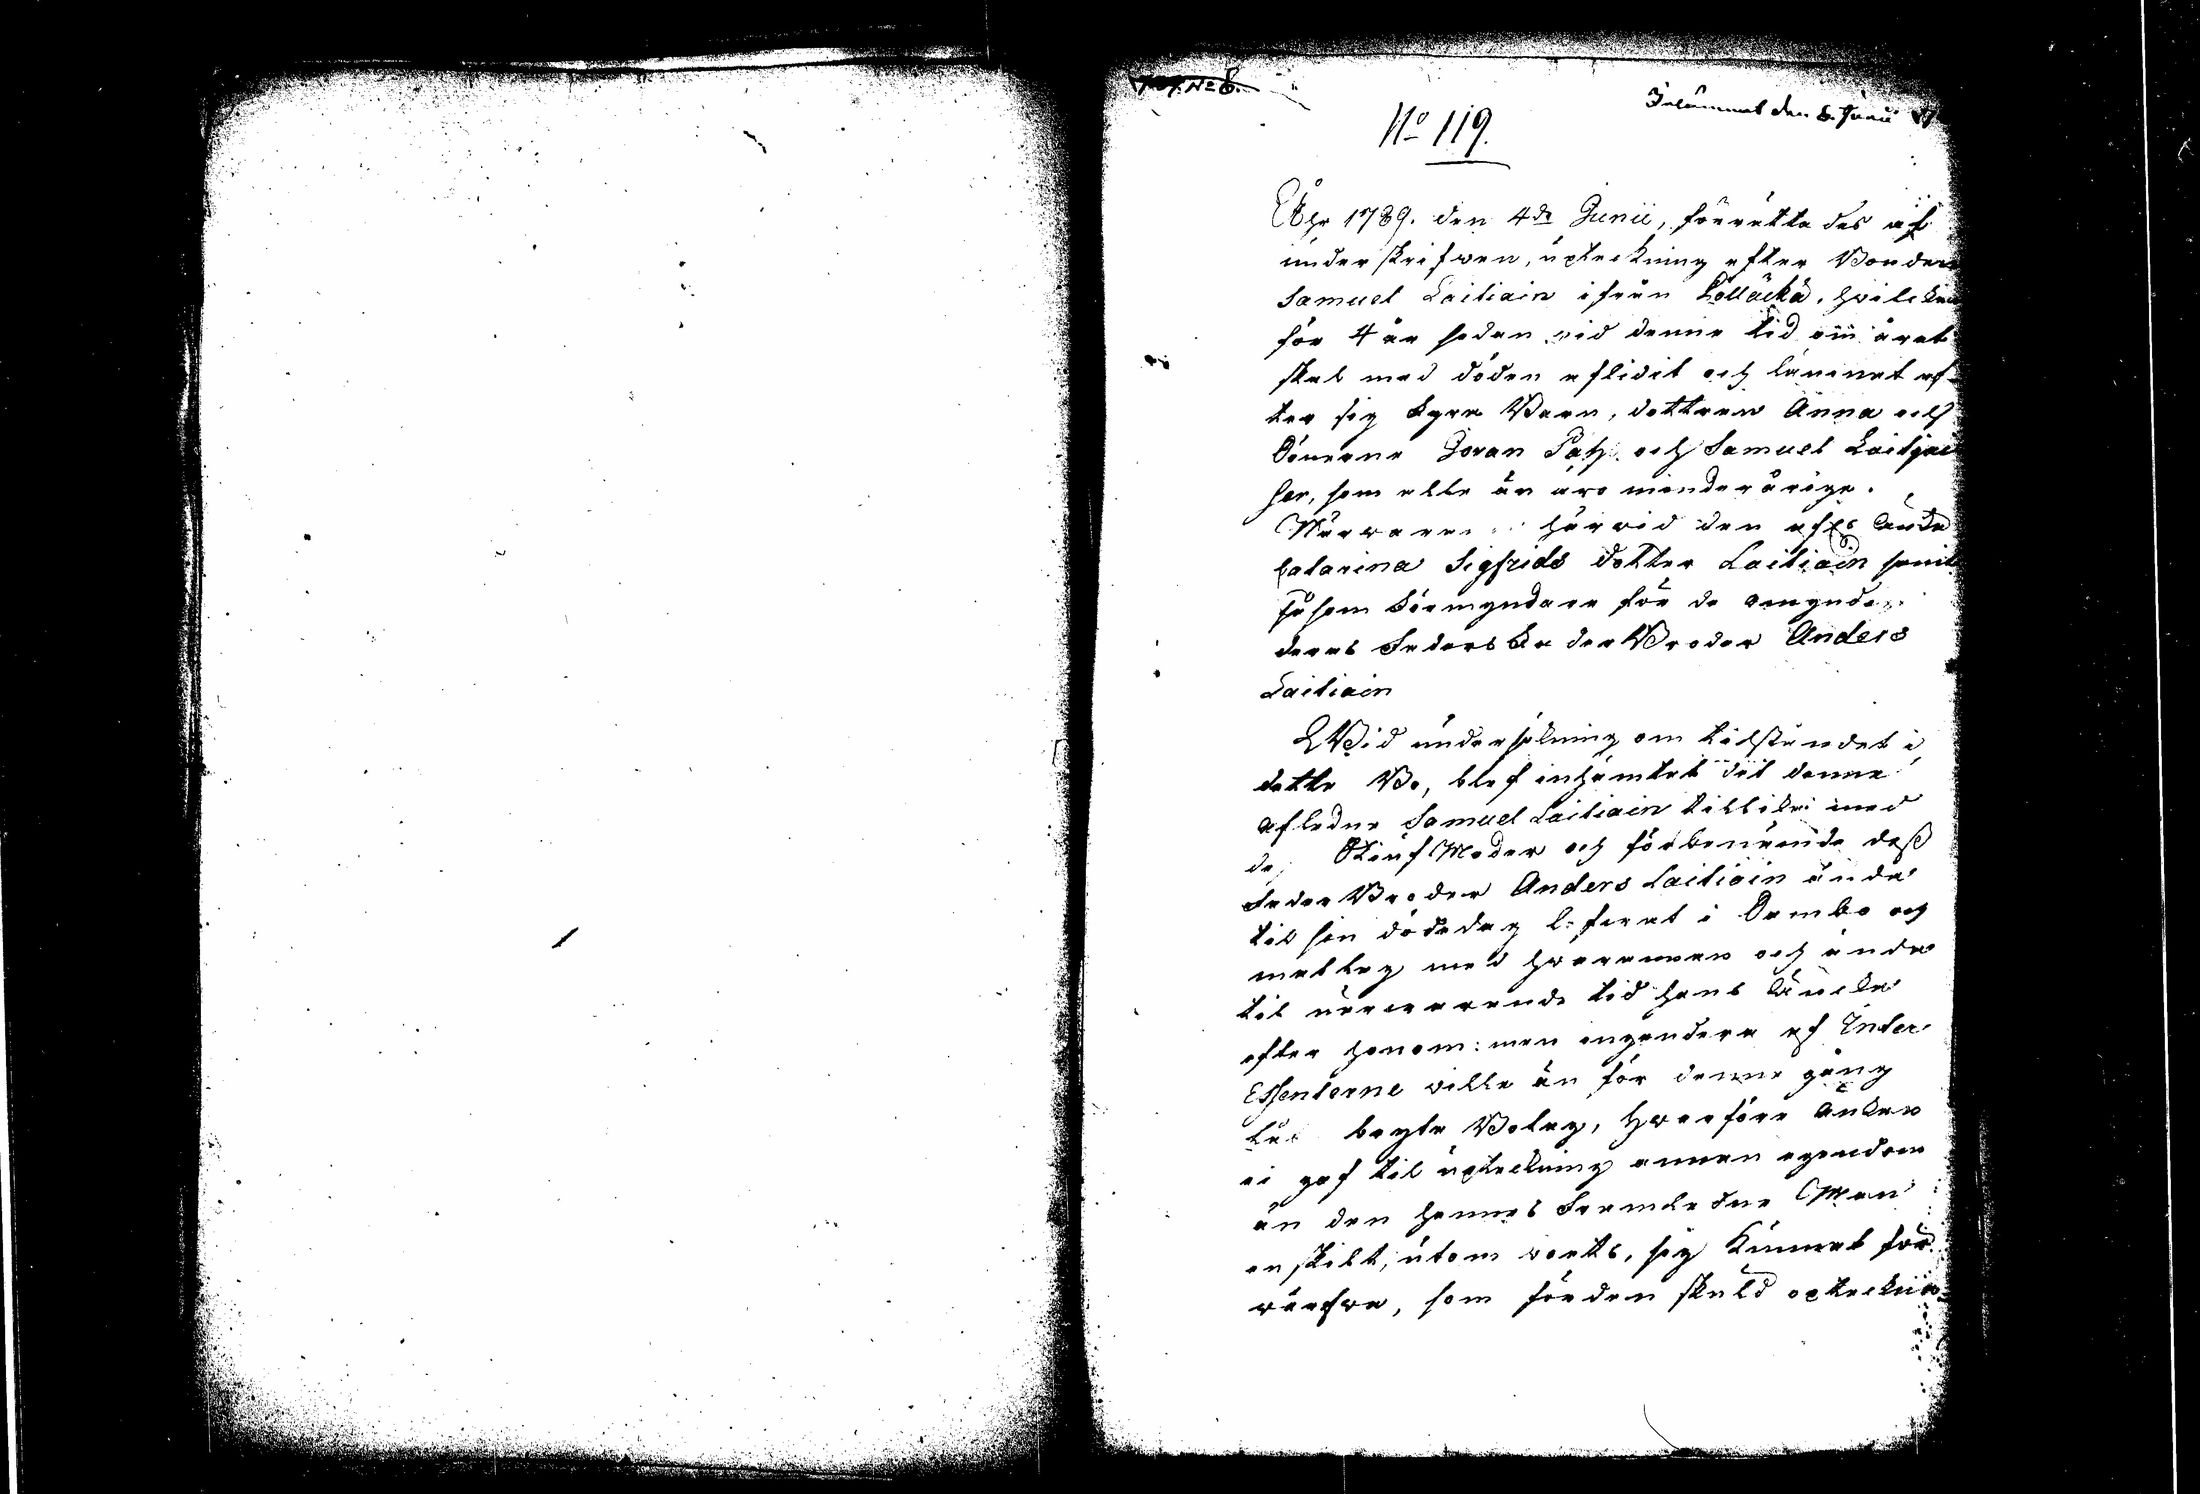 No 8.
Inlämnat den 8 Junii
No 119.
Åhr 1789. den 4de Junii, förrättades af
underskrifwen, upteckning efter Bonden
Samuel Laitiain ifrån Lolläckä, hwilcken
för 4 år sedan wid denne tid om året
skal med döden aflidit och lämnat ef-
ter sig Barn, dottren Anna och
Sönerne Jöran Påhl och Samuel Laitjai
ser, som alle än äro minderårige.
Närwaren härwid den afls Änka
Catarina Sigfrids dotter Laitiain samt
såsom Förmyndare för de omynd
deras Faders Broder Anders
Laitiain
Wid undersökning om tilståndet i
dette Bo, blef inhämtat det denne
afledne Samuel Laitiain tillika med
de Stiuf Moder och förbenämde dess
Fader Broder Anders Laitiain ända
til sin dödedag lefwat i Sambo och
matlag med hwarannan och ända
til närwarande tid hans Äncka
efter honom: men ingendera af Inter
Essenterne wille än för denne gång
begte Bolag, hwarföre Änkan
ei gaf til upteckning annan egendom
än den hennes Framledne Man
enskilt, utom wärts, sig kunnat för
wärfwa, som förden skuld optecknas